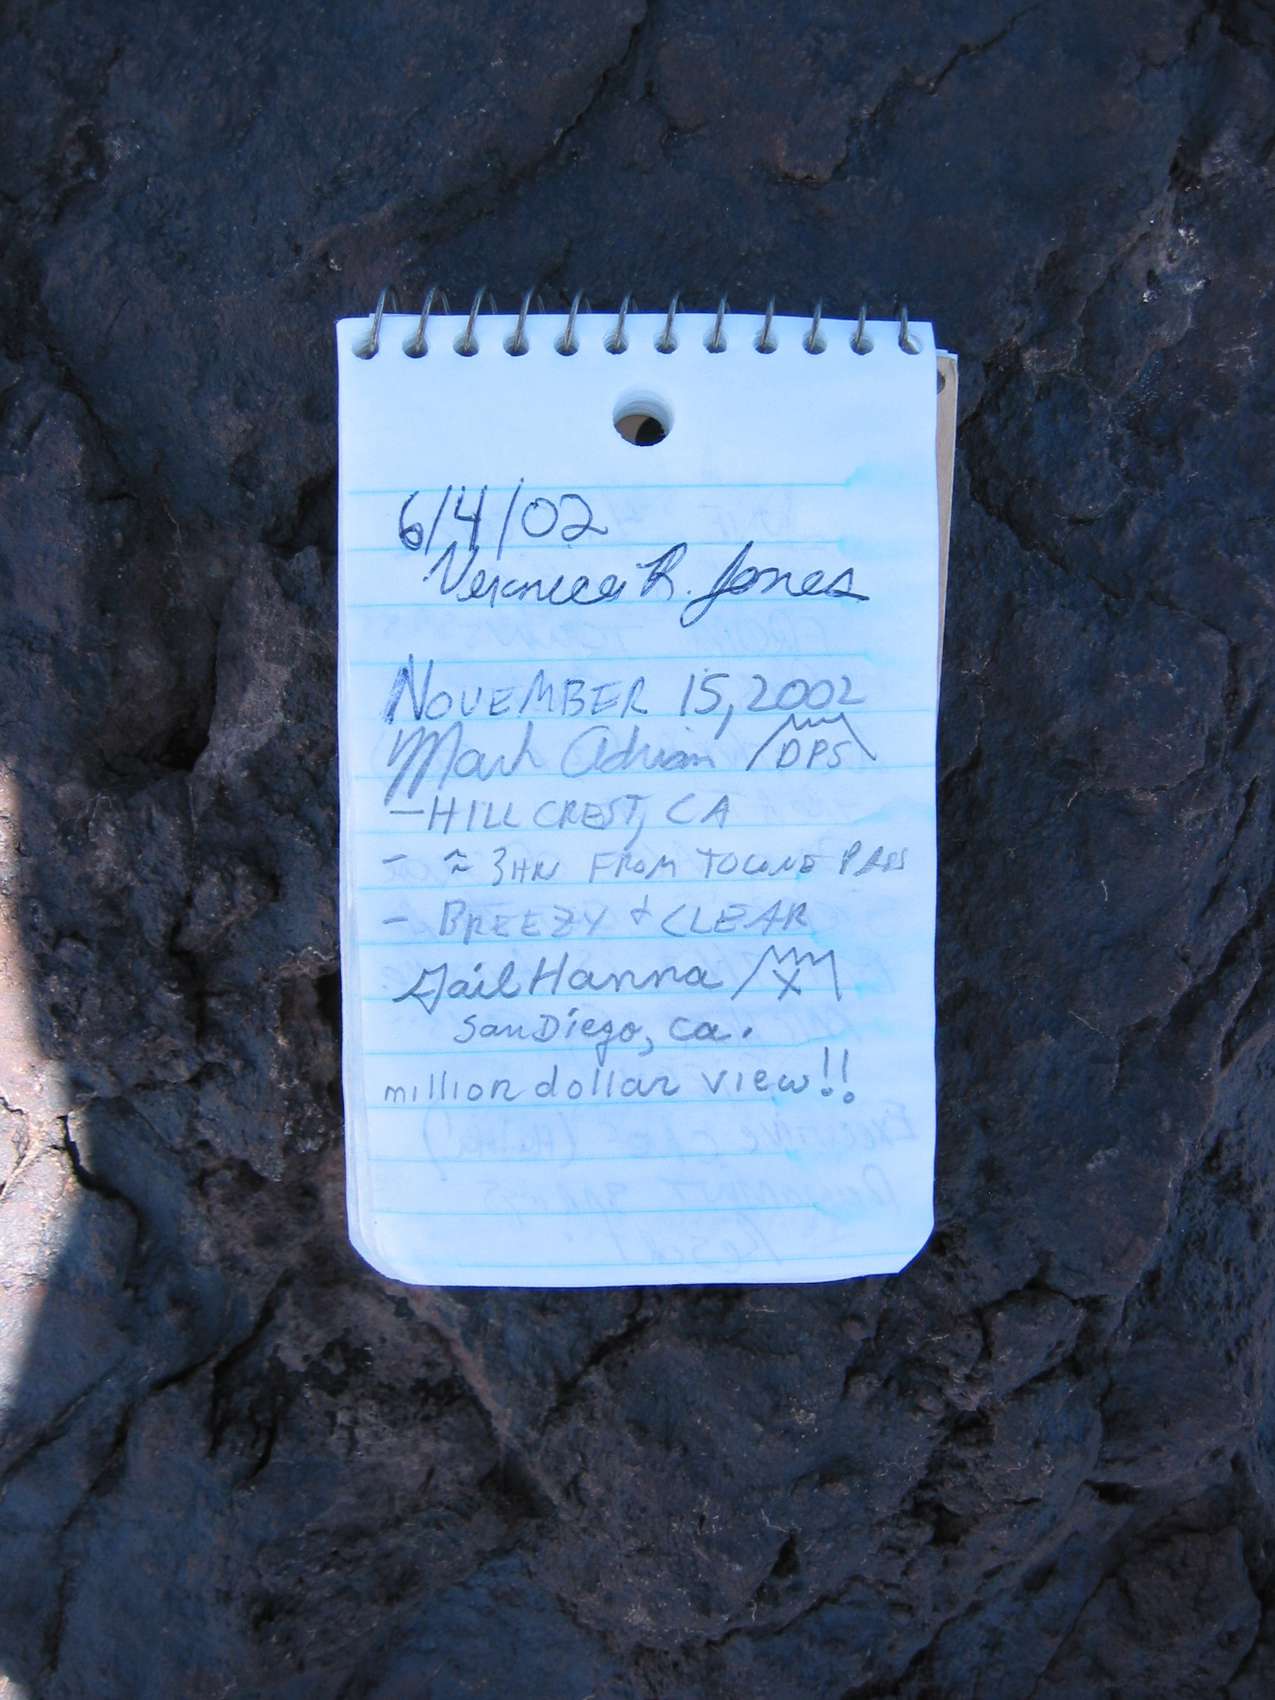 6/4/02
Veronica R. Jones
NOVEMBER 15, 2002
Mark Adrian DPS
- HILLCREST, CA
- ≈ 3HR FROM TOWNE PASS
- BREEZY + CLEAR
Gail Hanna X
San Diego, Ca.
million dollar view!!